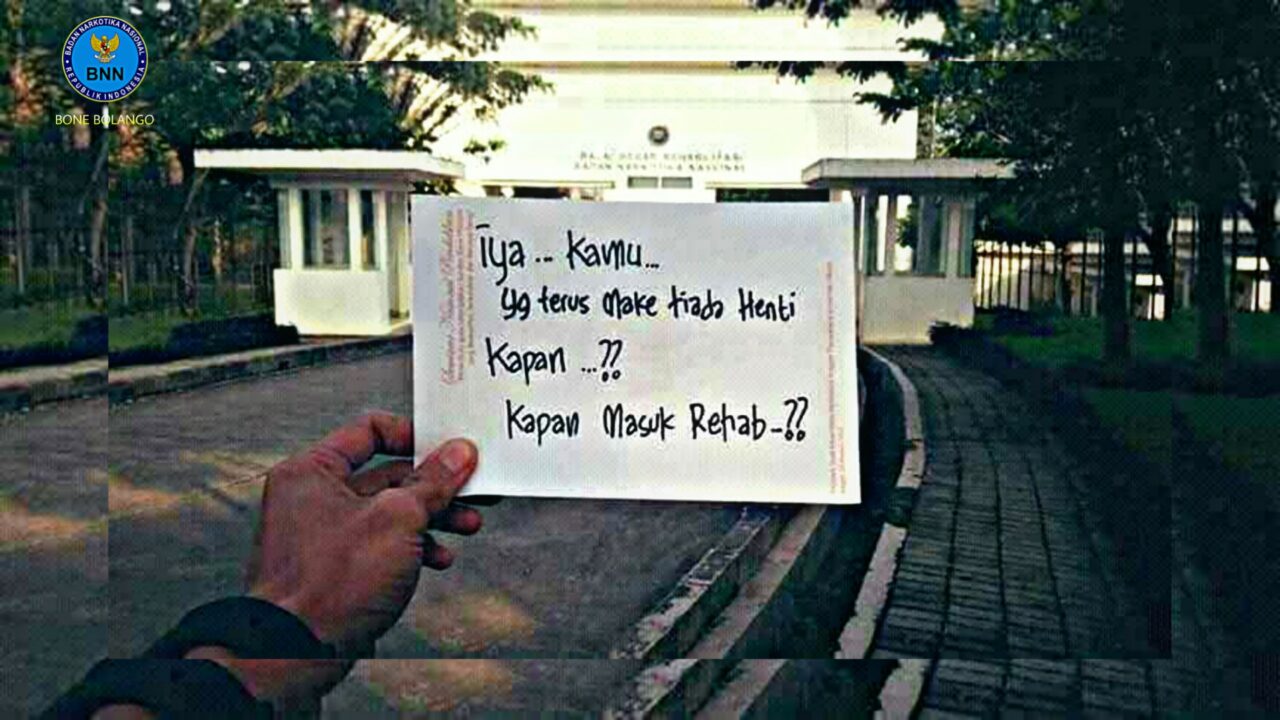 BADAN NARKOTIKA NASIONAL
BNN
REPUBLIK INDONESIA
BONE BOLANGO
BALAI BESAR REHABILITASI
BADAN NARKOTIKA NASIONAL
Iya .. Kamu...
yg terus make tiada Henti
Kapan ...??
Kapan Masuk Rehab..??